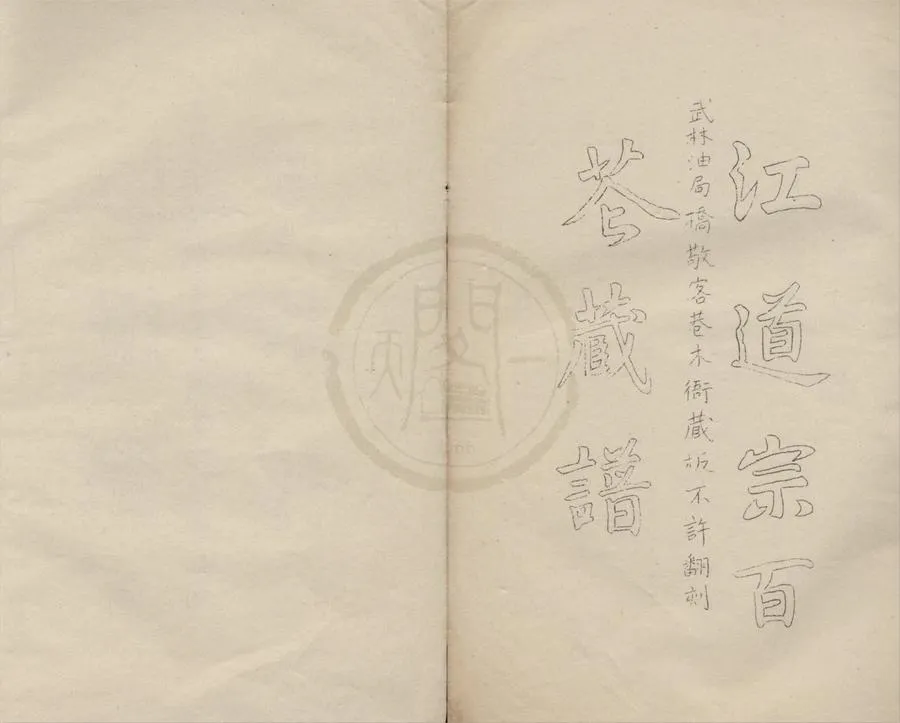 江道宗百
武林油局橋敬客巷木衙藏板不許翻刻
苍藏譜